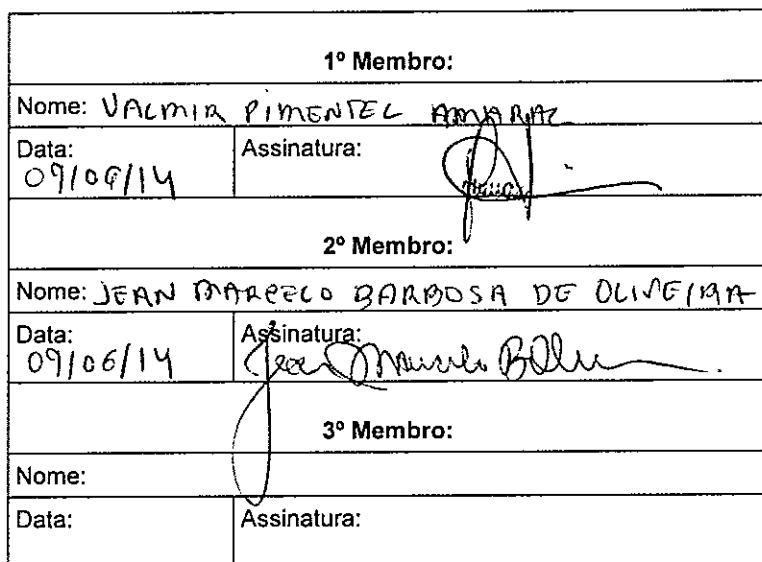 1º Membro:
Nome: VALMIR PIMENTEL AMARAL
Data: Assinatura:
09/06/14
2º Membro:
Nome: JEAN MARCELO BARBOSA DE OLIVEIRA
Data: Assinatura:
09/06/14 Jean Marcelo B
3º Membro:
Nome:
Data: Assinatura: